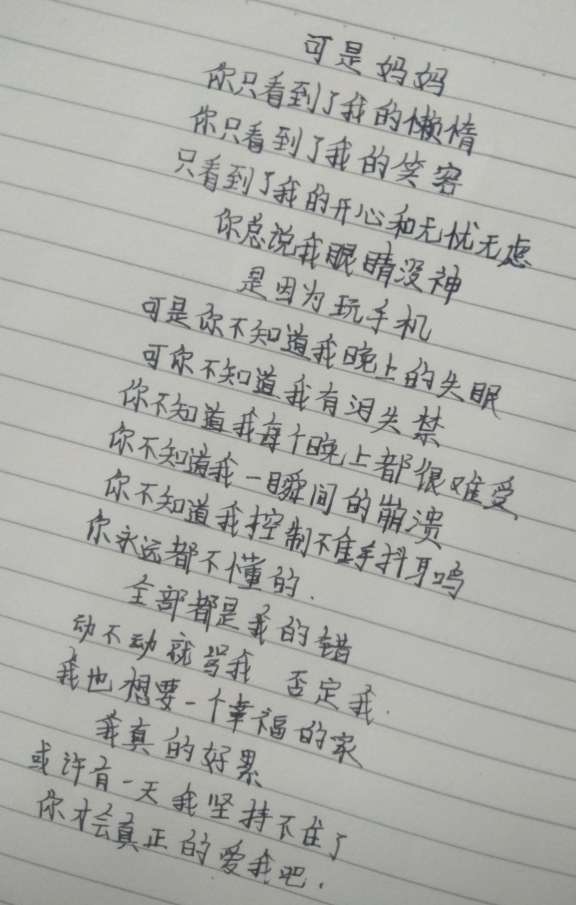 可是妈妈
你只看到了我的懒惰
你只看到了我的笑容
只看到了我的开心和无忧无虑
你总说我眼睛没神
是因为玩手机
可是你不知道我晚上的失眠
可你不知道我有泪失禁
你不知道我每个晚上都很难受
你不知道我一瞬间的崩溃
你不知道我控制不住手抖耳鸣
你永远都不懂的.
全部都是我的错
动不动就骂我 否定我.
我也想要一个幸福的家
我真的好累
或许有一天我坚持不住了
你才会真正的爱我吧.